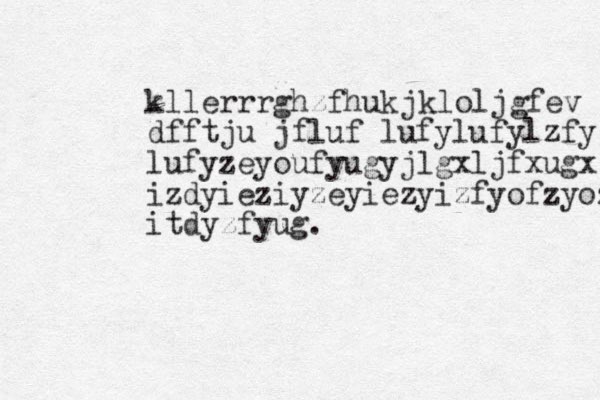 kllerrrghzfhukjkloljgfev
dfftju jfluf lufylufylzfy
lufyzeyoufyugyjlgxljfxugx
izdyieziyzeyiezyizfyofzyo
itdyzfyug.